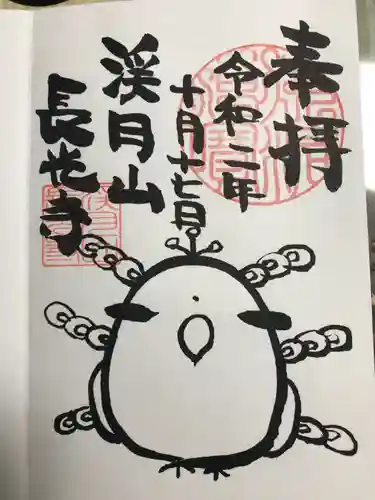 奉拝
令和二年
十月十七日
渓月山
長光寺